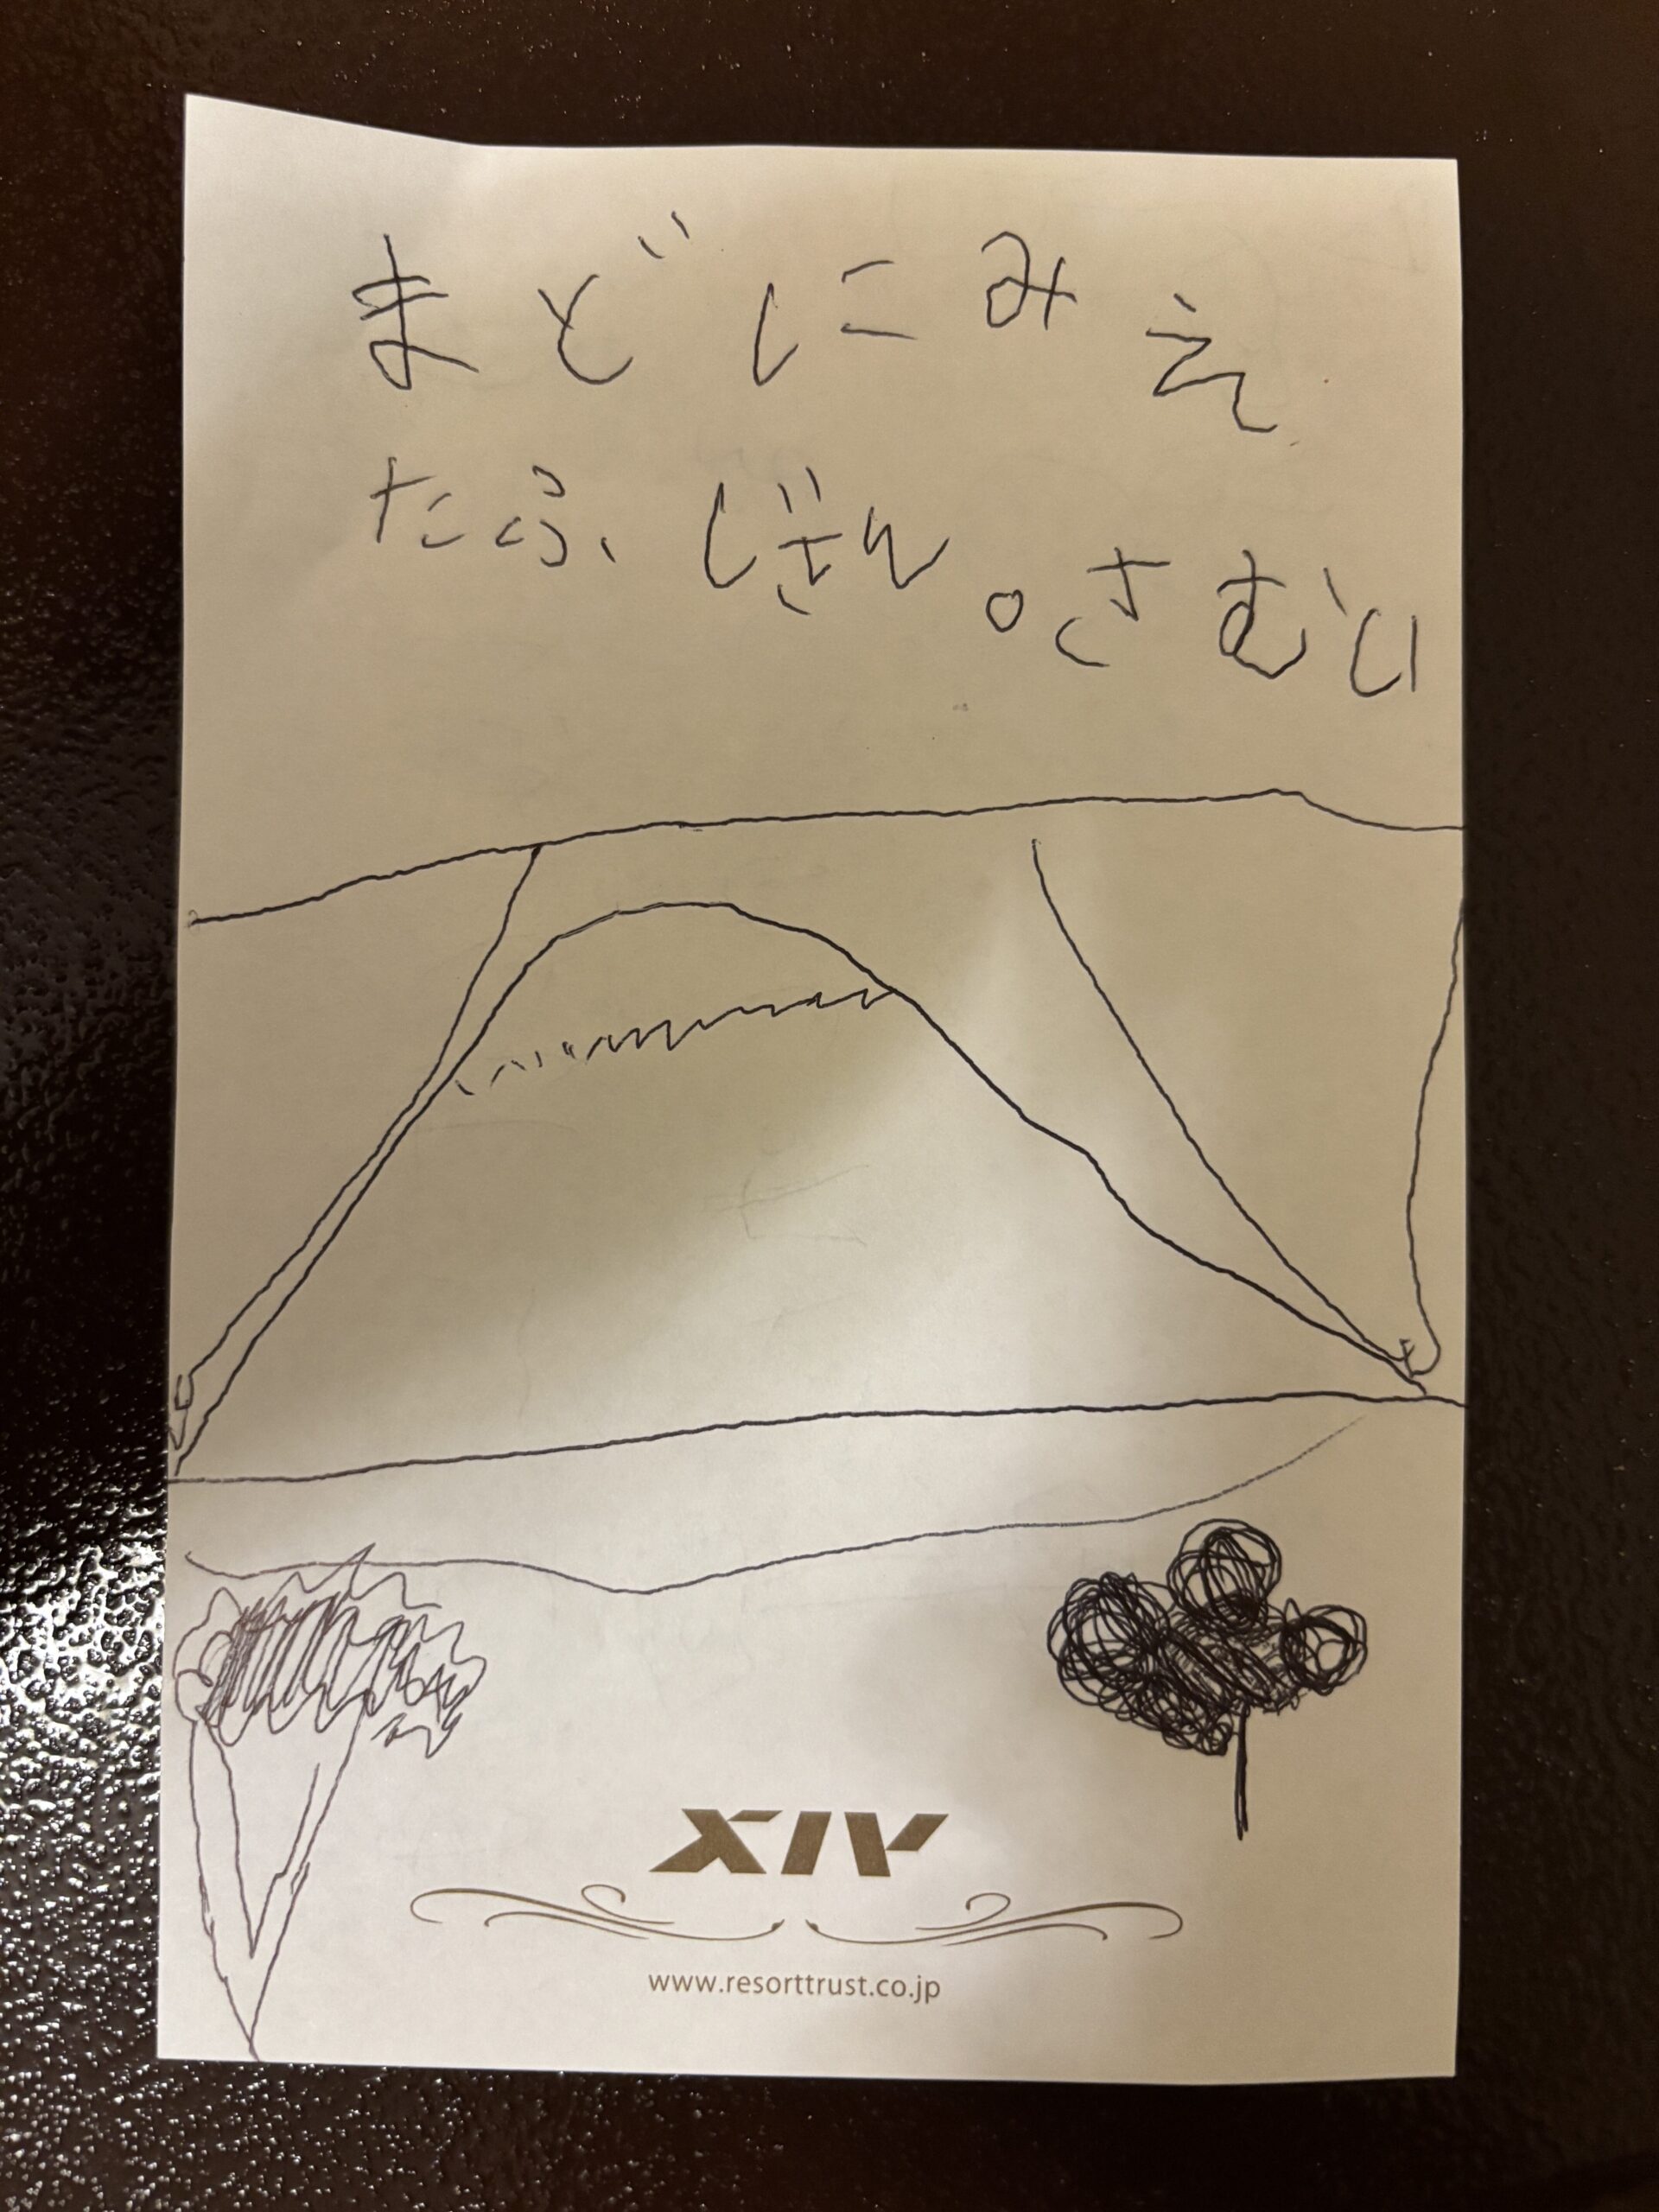 まどにみえ
たふじさん。さむい
XIV
www.resorttrust.co.jp